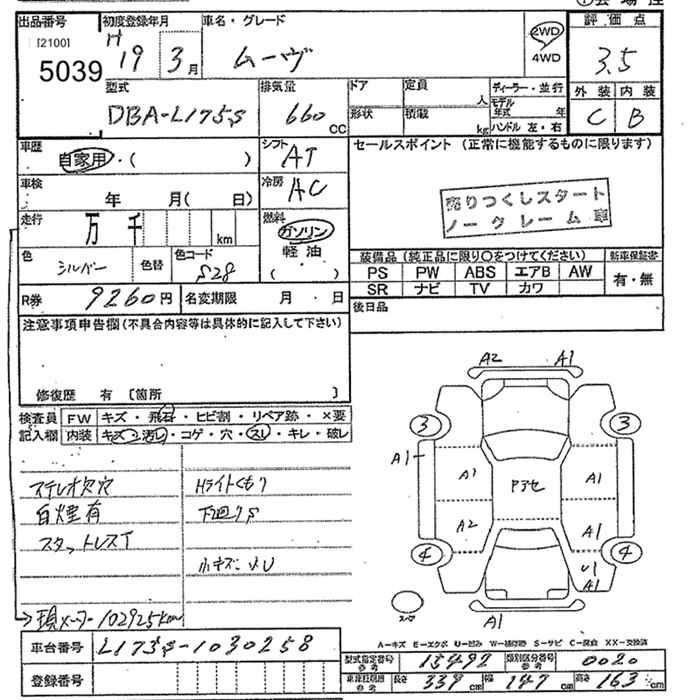 出品番号 初度登録年月 車名・グレード 評価点
[2100] H 19 3月 ムーヴ 2WD 3.5
5039 4WD
型式 排気量 ドア 定員 ディーラー・並行 外装 内装
DBA-L175S 660 人 モデル年式 年 C B
CC 形状 積載 kg ハンドル 左・右
車歴 自家用・( ) シフト AT セールスポイント (正常に機能するものに限ります)
車検 年 月( 日) 冷房 AC
売りつくしスタート
ノークレーム車
走行 万 千 km 燃料 ガソリン
軽油
( )
色 シルバー 色替 色コード S28
装備品 (純正品に限り〇をつけてください) 新車保証書
PS PW ABS エアB AW 有・無
SR ナビ TV カワ
R券 9260円 名変期限 月・日 後日品
注意事項申告欄(不具合内容等は具体的に記入して下さい)
修復歴 有 [箇所 ]
検査員 FW キズ・飛石・ヒビ割・リペア跡・×要
記入欄 内装 キズ・汚レ・コゲ・穴・スレ・キレ・破レ
ステレオ欠穴 Hライトくもり
白煙有 下廻りS
スタットレスT
小キズ・メU
現メーター102925km
A2 A1
3 3
A1 A1 A1
アラセ
A2 A1
4 4
U1
A1
A1
スペア
A-キズ E-エクボ U-凹み W-補修跡 S-サビ C-腐食 XX-交換済
車台番号 L175S-1030258
型式指定番号 参考 15492 類別区分番号 参考 0020
登録番号
車両枠範囲 参考 長さ 339cm 幅 147cm 高さ 163cm